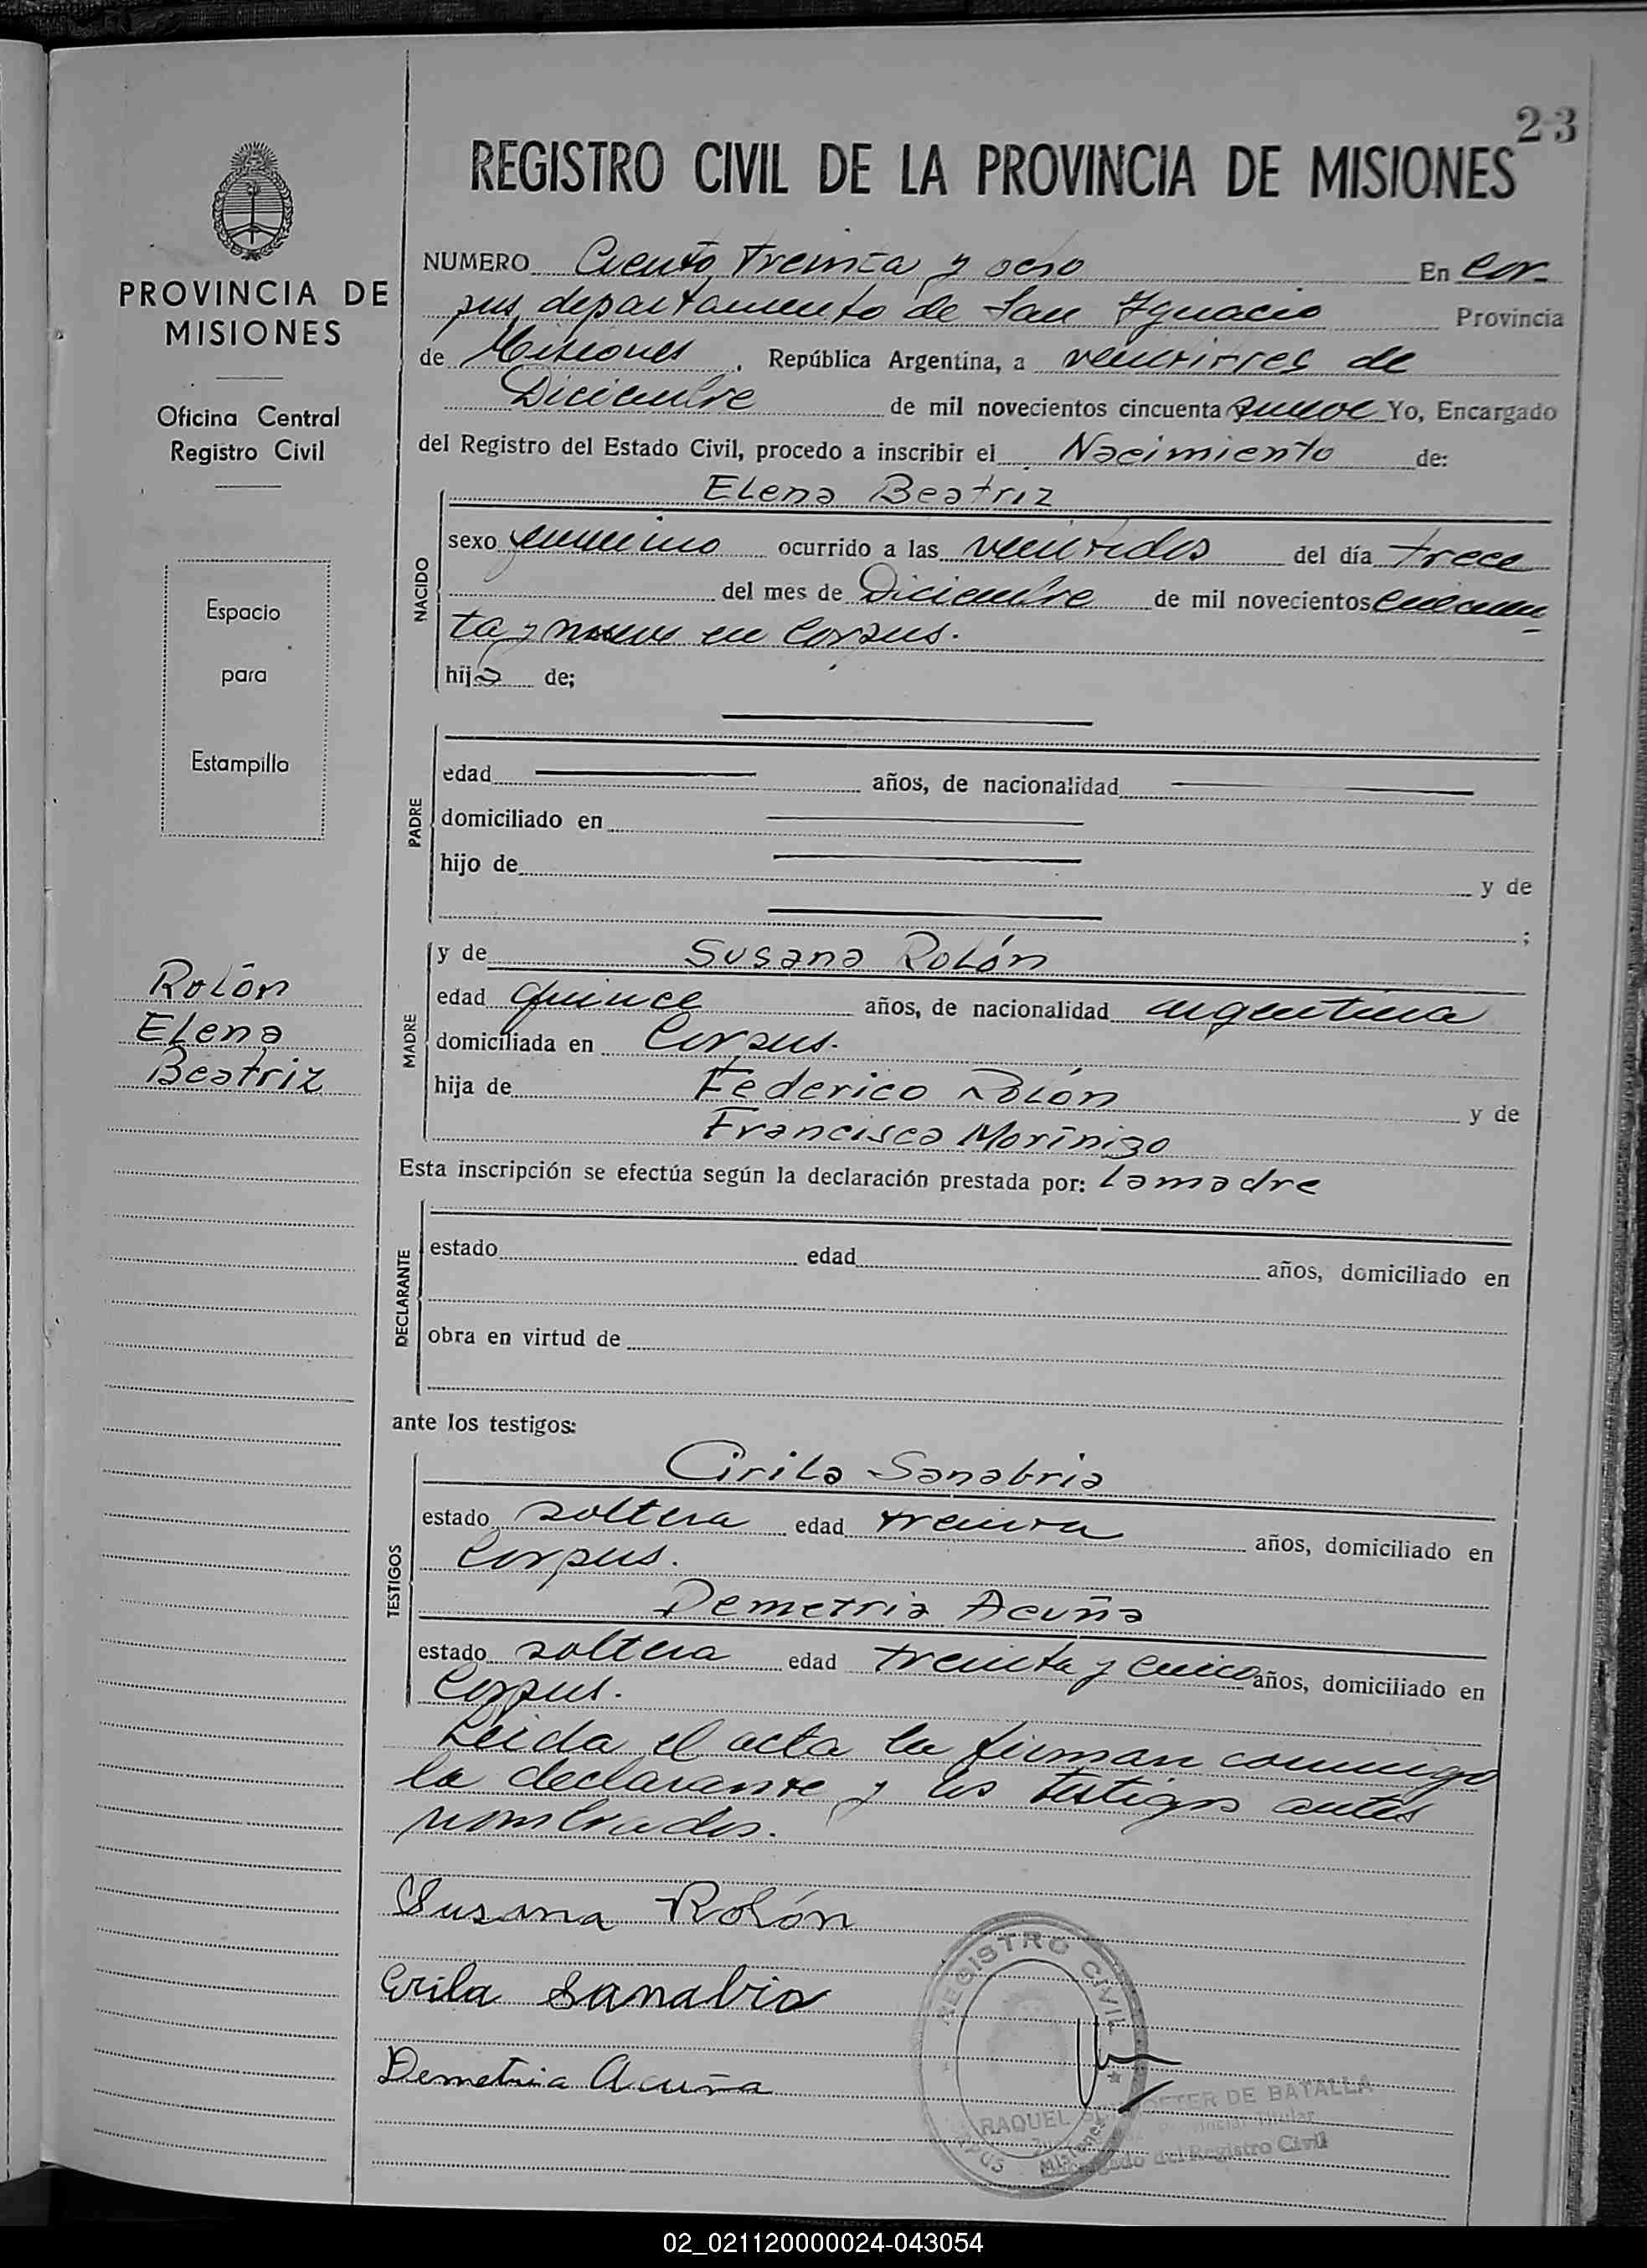 23
REGISTRO CIVIL DE LA PROVINCIA DE MISIONES
PROVINCIA DE
MISIONES
Oficina Central
Registro Civil
Espacio
para
Estampilla
Rolón
Elena
Beatriz
NUMERO Ciento Treinta y ocho En Cor-
pus, departamento de San Ignacio Provincia
de Misiones, República Argentina, a veintitres de
Diciembre de mil novecientos cincuenta y nueve Yo, Encargado
del Registro del Estado Civil, procedo a inscribir el Nacimiento de:
NACIDO
Elena Beatriz
sexo femenino ocurrido a las veintidos del día trece
del mes de Diciembre de mil novecientos cincuen-
ta y nueve en Corpus.
hija de;
PADRE
edad años, de nacionalidad
domiciliado en
hijo de y de
;
MADRE
y de Susana Rolón
edad quince años, de nacionalidad argentina
domiciliada en Corpus.
hija de Federico Rolón y de
Francisca Morínigo
Esta inscripción se efectúa según la declaración prestada por: la madre
DECLARANTE
estado edad años, domiciliado en
obra en virtud de
ante los testigos:
TESTIGOS
Cirila Sanabria
estado soltera edad treinta años, domiciliado en
Corpus.
Demetria Acuña
estado soltera edad treinta y cinco años, domiciliado en
Corpus.
Leida el acta la firman conmigo
la declarante y los testigos antes
nombrados.
Susana Rolón
Cirila Sanabria
Demetria Acuña
REGISTRO CIVIL
CORPUS Misiones
RAQUEL DE BATALLA
Titular
Encargado del Registro Civil
02_021120000024-043054